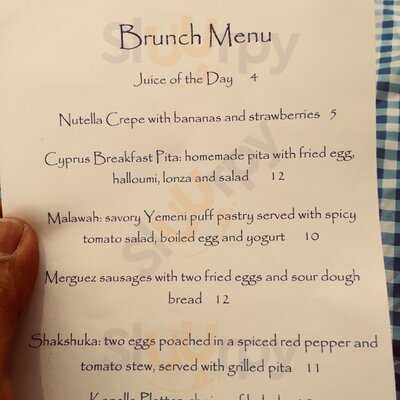 Brunch Menu
Juice of the Day 4
Nutella Crepe with bananas and strawberries 5
Cyprus Breakfast Pita: homemade pita with fried egg,
halloumi, lonza and salad 12
Malawah: savory Yemeni puff pastry served with spicy
tomato salad, boiled egg and yogurt 10
Merguez sausages with two fried eggs and sour dough
bread 12
Shakshuka: two eggs poached in a spiced red pepper and
tomato stew, served with grilled pita 11